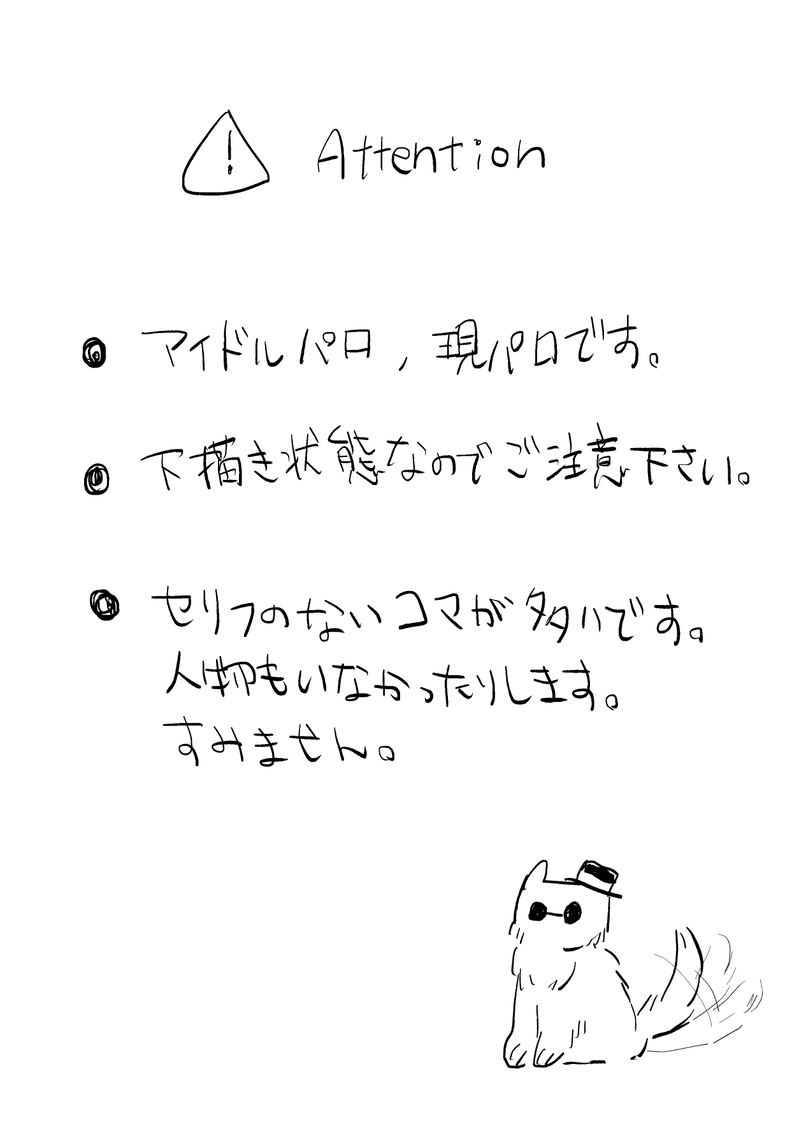 ! Attention
アイドルパロ,現パロです。
下描き状態なのでご注意下さい。
セリフのないコマが多いです。
人物もいなかったりします。
すみません。